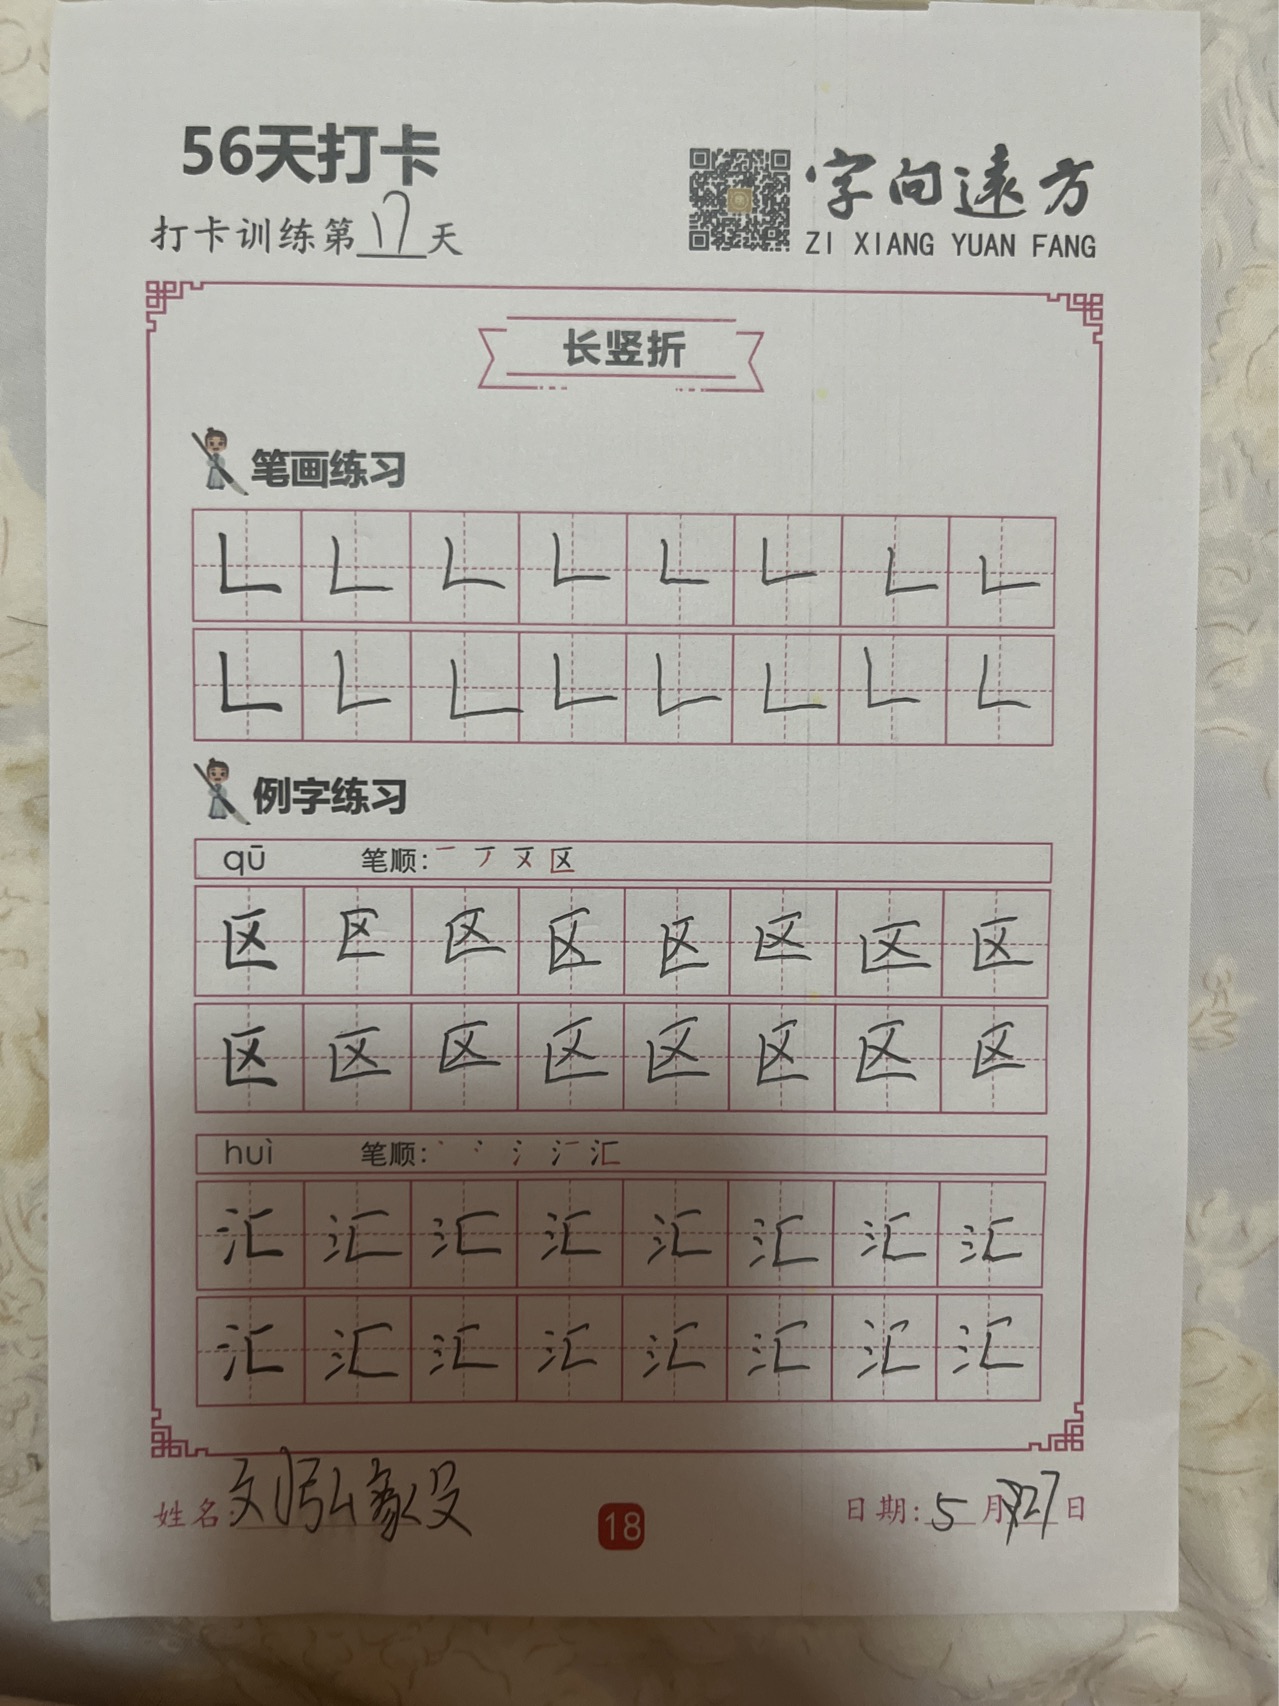 56天打卡
打卡训练第17天
字向遠方
ZI XIANG YUAN FANG
长竖折
笔画练习
㇗ ㇗ ㇗ ㇗ ㇗ ㇗ ㇗ ㇗
㇗ ㇗ ㇗ ㇗ ㇗ ㇗ ㇗ ㇗
例字练习
qū 笔顺: 区
区 区 区 区 区 区 区 区
区 区 区 区 区 区 区 区
huì 笔顺: 汇
汇 汇 汇 汇 汇 汇 汇 汇
汇 汇 汇 汇 汇 汇 汇 汇
姓名 刘弘毅
18
日期: 5月27日